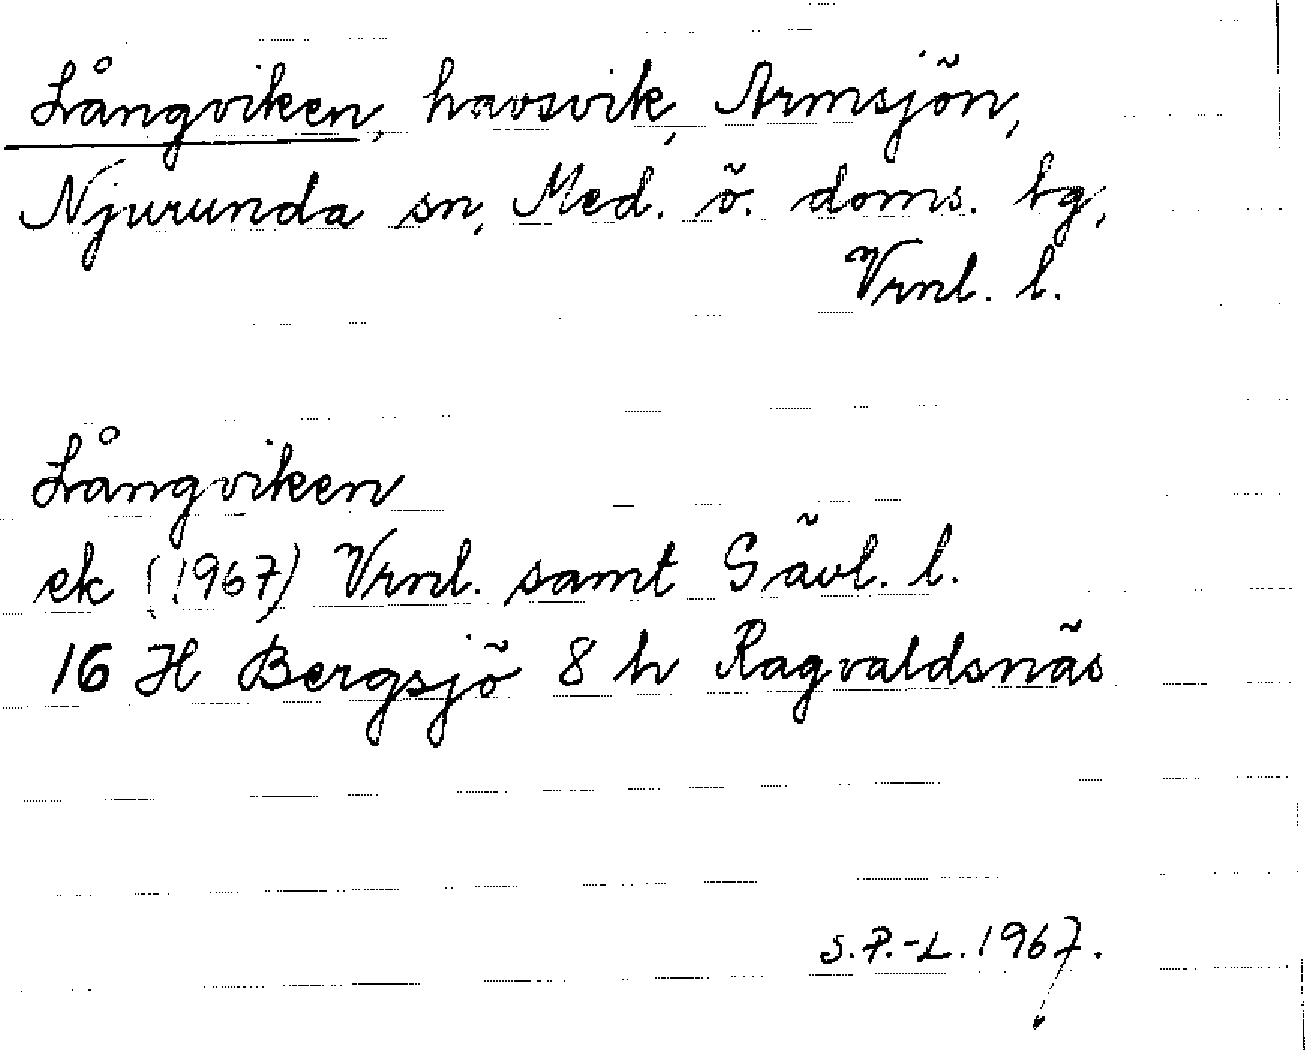 Långviken, havsvik, Armsjön,
Njurunda sn, Med. ö. doms. tg,
Vrnl. l.
Långviken
ek (1967) Vrnl. samt Gävl. l.
16 H Bergsjö 8 h Ragvaldsnäs
S.P.-L. 1967.